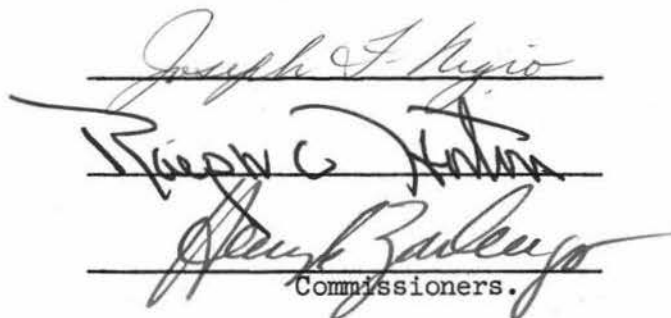 Joseph F. Nigro
Ralph C Horton
Henry Zarlengo
Commissioners.